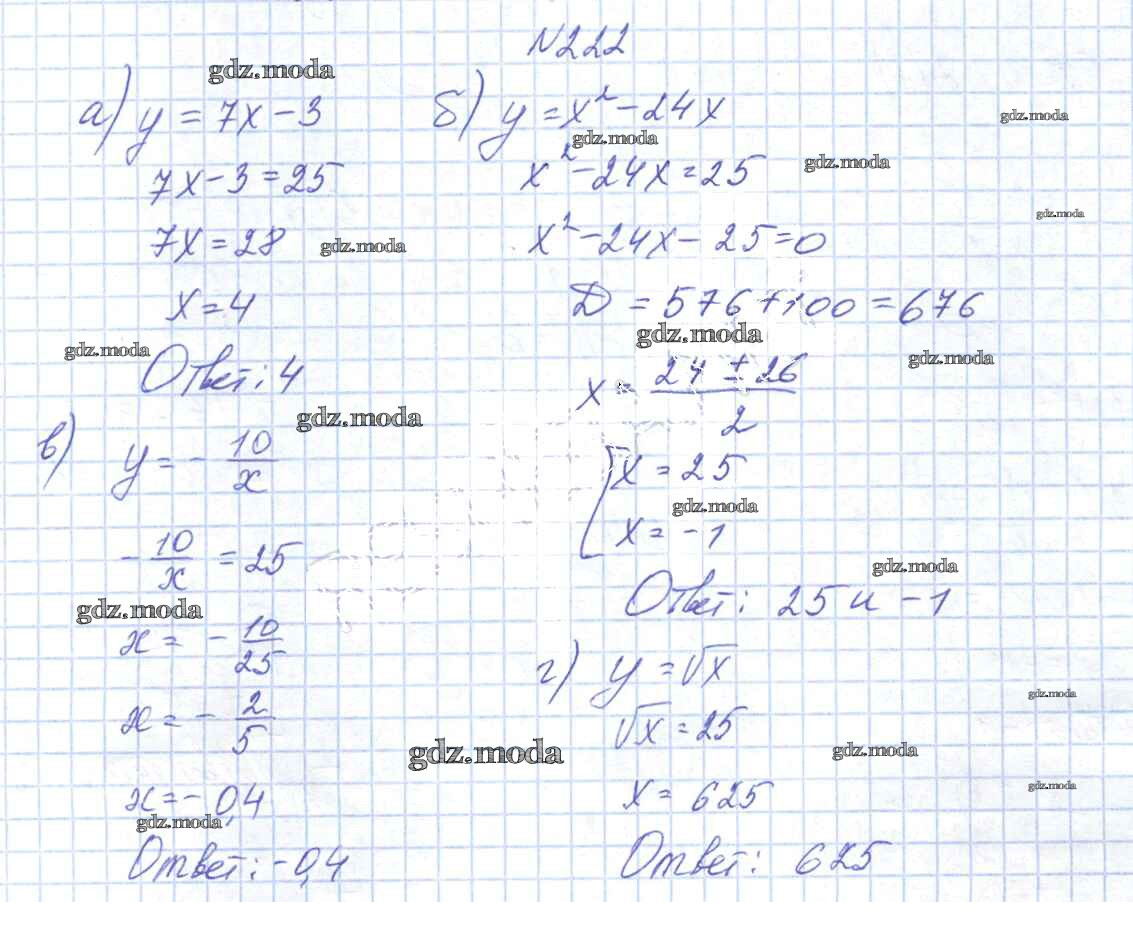 N222
gdz.moda
а) y = 7x − 3
7x − 3 = 25
7x = 28
gdz.moda
x = 4
gdz.moda
Ответ: 4
б) y = x² − 24x
gdz.moda
gdz.moda
x² − 24x = 25
gdz.moda
gdz.moda
x² − 24x − 25 = 0
D = 576 + 100 = 676
gdz.moda
gdz.moda
x = (24 ± 26)/2
[x = 25
gdz.moda
x = −1
gdz.moda
Ответ: 25 и −1
gdz.moda
в) y = −10/x
−10/x = 25
gdz.moda
x = −10/25
x = −2/5
gdz.moda
x = −0,4
gdz.moda
Ответ: −0,4
г) y = √x
gdz.moda
√x = 25
gdz.moda
x = 625
gdz.moda
Ответ: 625